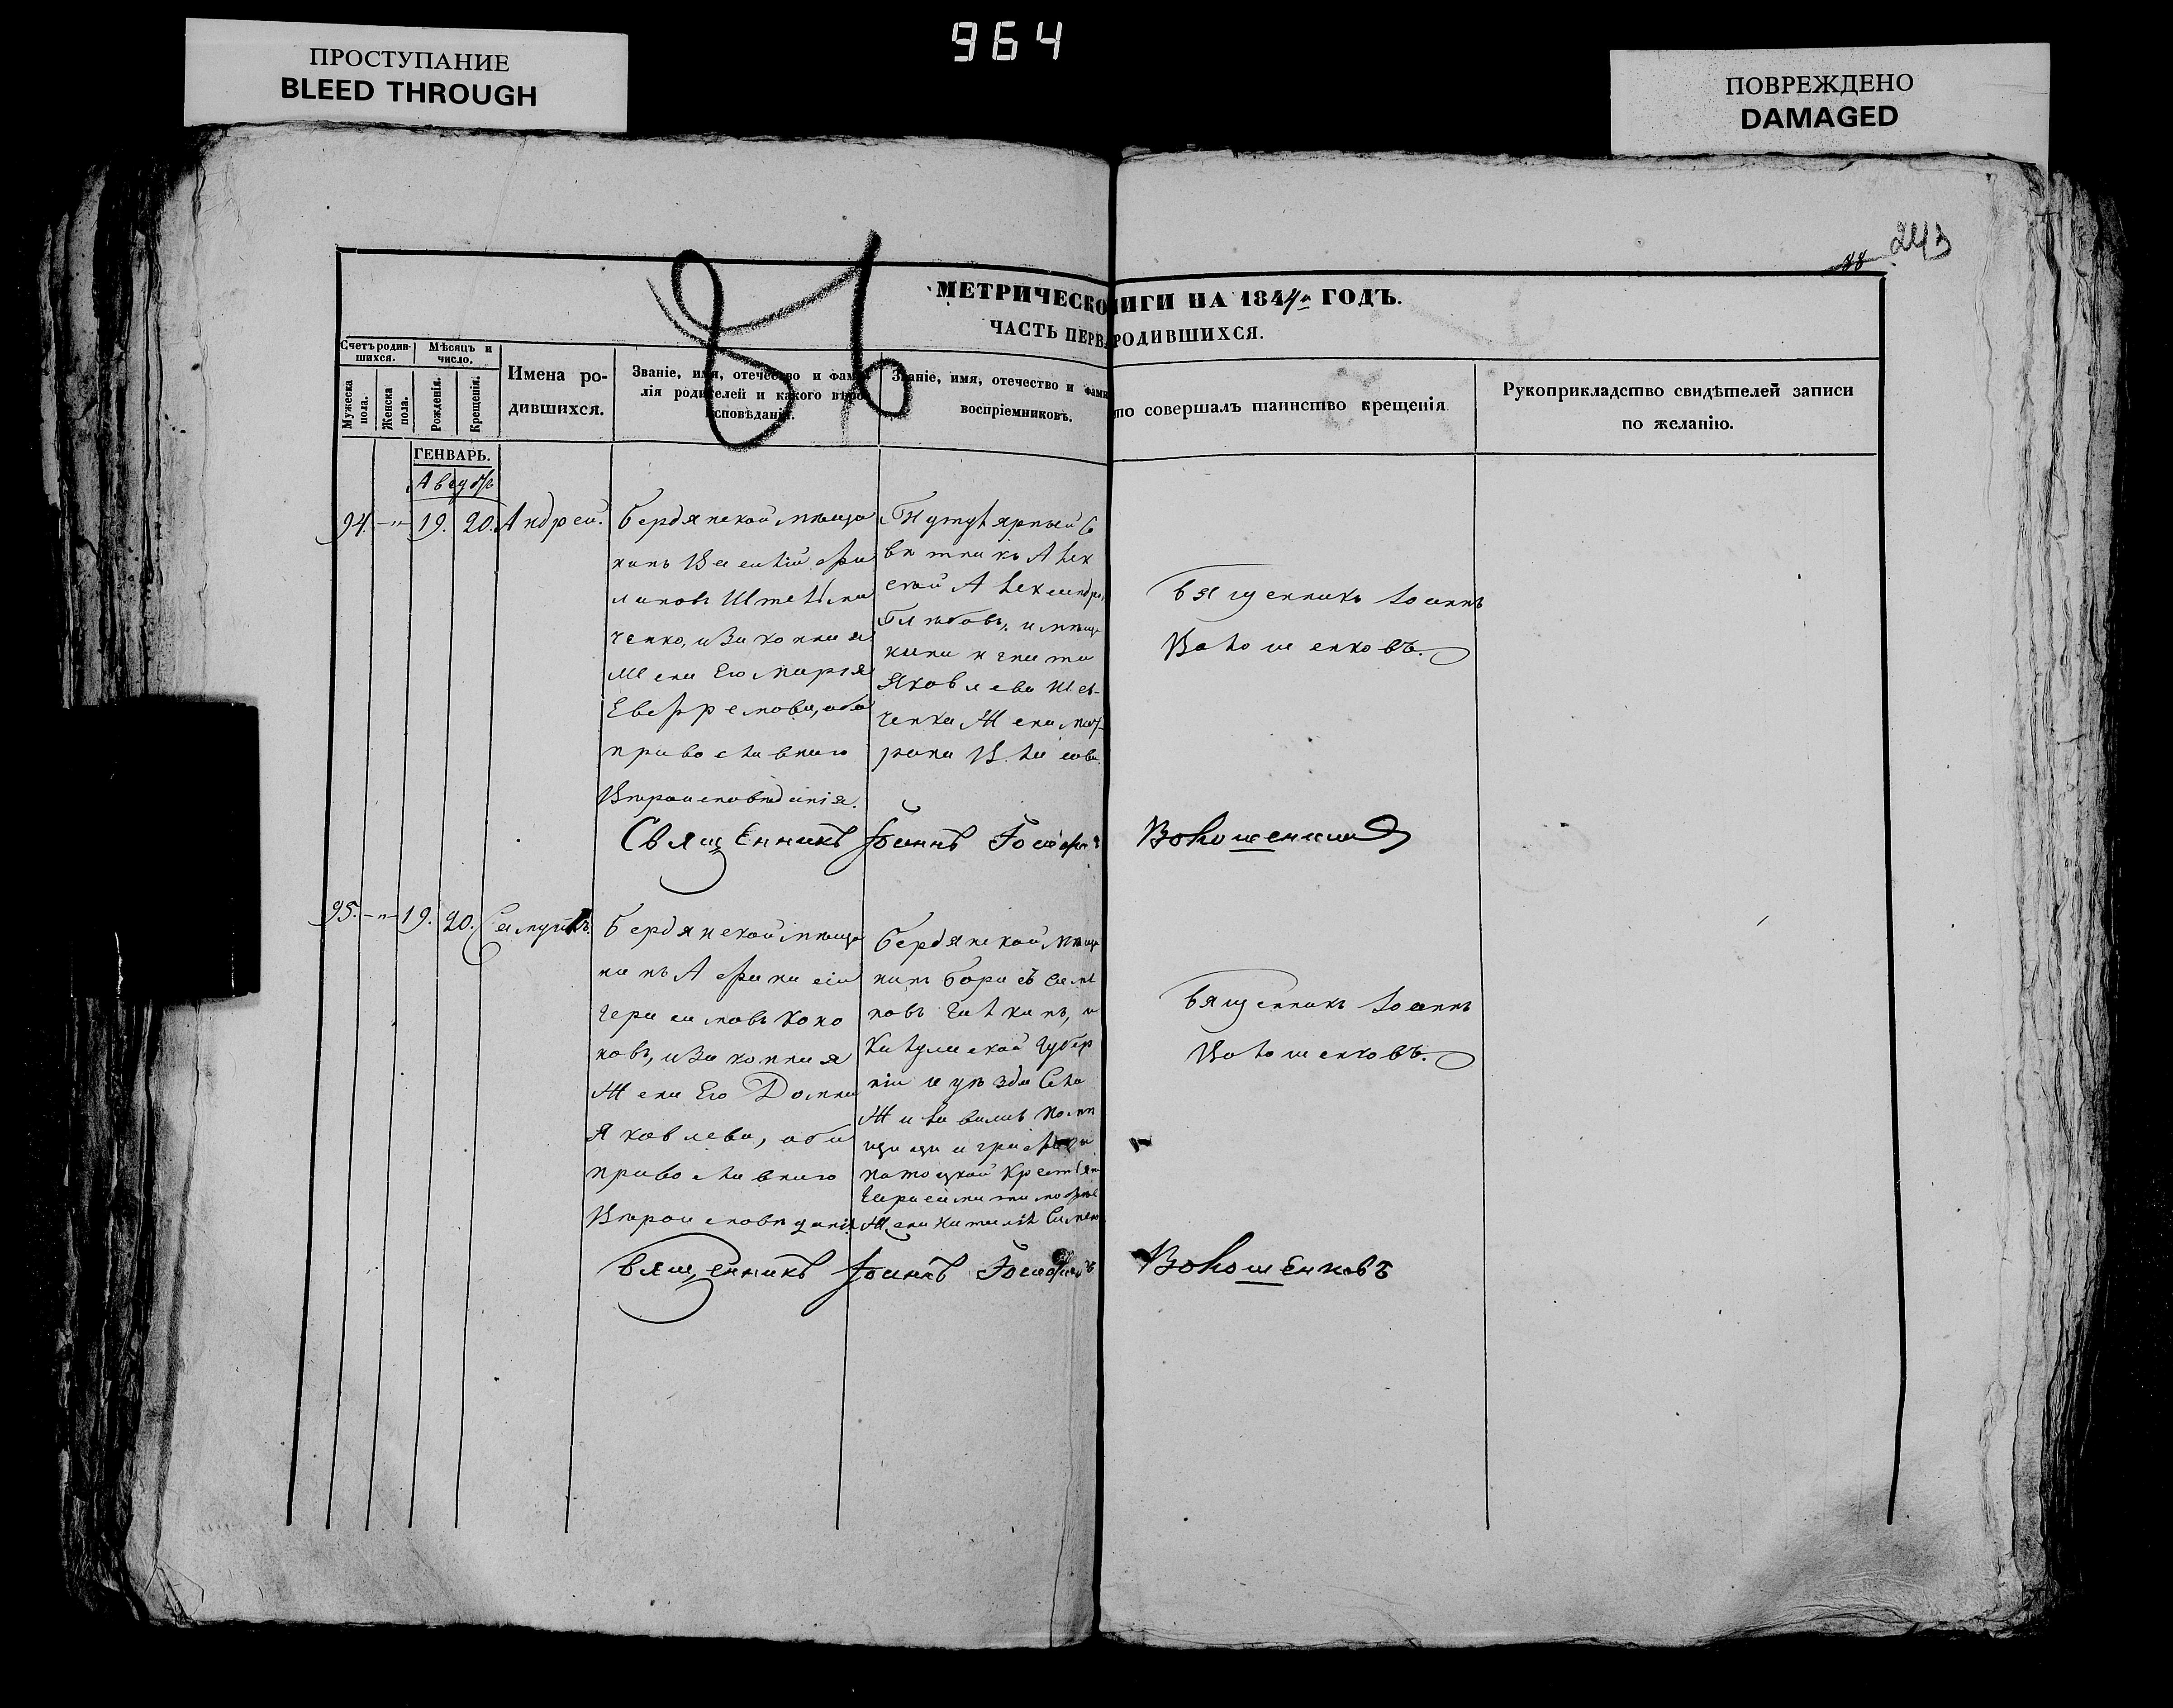 964
ПРОСТУПАНИЕ
BLEED THROUGH
ПОВРЕЖДЕНО
DAMAGED
243
МЕТРИЧЕСКО ИГИ НА 1844 ГОДЪ.
ЧАСТЬ ПЕРВА РОДИВШИХСЯ.
Счетъ родив-
шихся.
Мѣсяцъ и
число.
Мужеска
пола.
Женска
пола.
Рожденія.
Крещенія.
Имена ро-
дившихся.
Званіе, имя, отечество и фами
лія родителей и какого вѣро
исповѣданія.
Званіе, имя, отечество и фами
воспріемниковъ.
то совершалъ таинство крещенія
Рукоприкладство свидѣтелей записи
по желанію.
ГЕНВАРЬ.
Августъ
94. -"- 19. 20. Андрей.
Бердянской мѣща
нинъ Василій Фи
липовъ
ченко, и Законная
Жена Его Марія
Евфремова, оба
православнаго
Вѣроисповѣданія.
Титулярный Со
вѣтникъ Алек
сѣй Александро
Глѣбовъ, и мѣща
нина Игната
Яковлева Шев-
ченка Жена Мат-
рона Власова.
Священникъ Іоаннъ
Волошенковъ.
Священникъ Іоаннъ Волошенковъ
95. -"- 19. 20. Самуилъ.
Бердянской мѣща
нинъ Афанасій
Герасимовъ Коно
новъ, и Законная
Жена Его Домна
Яковлева, оба
православнаго
Вѣроисповѣданія
Бердянской мѣща
нинъ Борисъ Семе
новъ Галкинъ, и
Калужской Губер
ніи и уѣзда Села
помѣ
щицы графини
крестьян
Священникъ Іоаннъ
Волошенковъ.
Священникъ Іоаннъ Волошенковъ